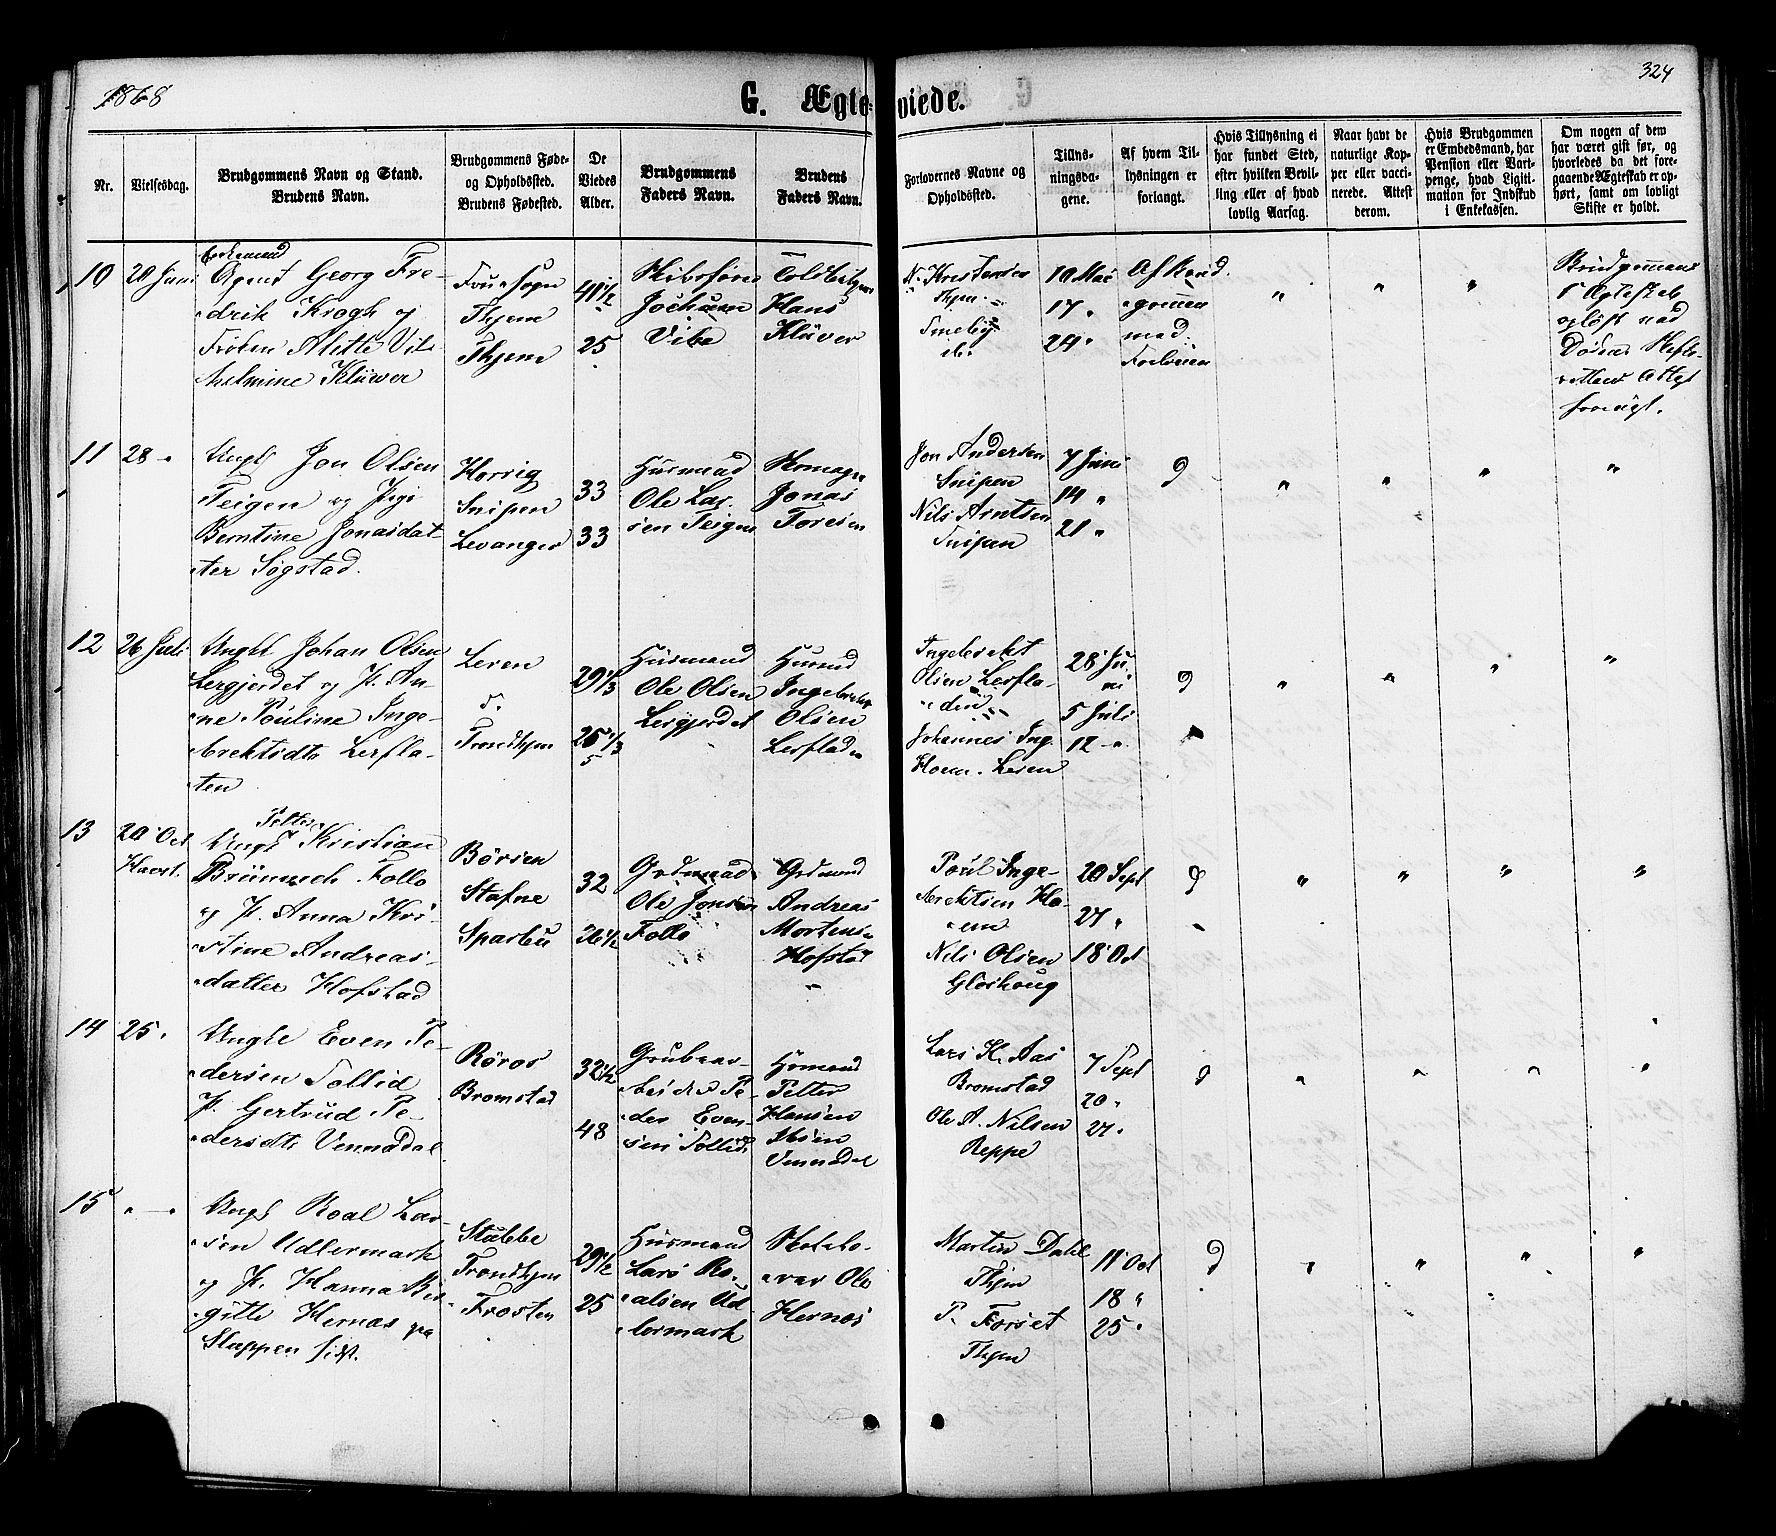 1868
324
G. Ægteviede.
Nr.
Vielsesdag.
Brudgommens Navn og Stand.
Brudens Navn.
Brudgommens Føde-
og Opholdssted.
Brudens Fødested.
De
Viedes
Alder.
Brudgommens
Faders Navn.
Brudens
Faders Navn.
Forlovernes Navne og
Opholdssted.
Tillys-
ningsda-
gene.
Af hvem Til-
lysningen er
forlangt.
Hvis Tillysning ei
har fundet Sted,
efter hvilken Bevil-
ling eller af hvad
lovlig Aarsag.
Naar havt de
naturlige Kop-
per eller vacci-
nerede. Attest
derom.
Hvis Brudgommen
er Embedsmand, har
Pension eller Vart-
penge, hvad Ligiti-
mation for Indskud
i Enkekassen.
Om nogen af dem
har været gift før, og
hvorledes da det fore-
gaaende Ægteskab er op-
hørt, samt om lovligt
Skifte er holdt.
10
Agent Georg Fre-
drik Krogh og
Frøken Mette Vil-
helmine Klüwer
Thjem
Thjem
41 1/2
25
Jochum
Hans
Klüver
Thjem
10 Mai
17 "
24 "
Brudgommens
1 Ægteskab
opløst ved
11
28 "
Ungk Jon Olsen
Teigen og Pige
Berntine Jonasdat
ter Søgstad.
Snipen
Levanger
33
33
Husmand
Ole Lar
sen Teigen
Jonas
Toresen
Jon Andersen
Snipen
Nils Arntsen
Snipen
7 Juni
14 "
21 "
12
26 Juli
Ungk Johan Olsen
Lergjerdet og P. An-
ne Pauline Inge-
brektsdtr Lerfla-
ten
Leren
Trondhjem
29 1/3
Husmand
Ole Olsen
Lergjerdet
Ingebrekt
Olsen
Ingebrekt
Olsen Lerfla-
den
Johannes Ing.
Leren
28 Ju
ni
5 Juli
12 "
13
20 Oct
Kristian
Brünnech Follo
og P. Anna Kri-
stine Andreas-
datter Hofstad
Børsen
Stafne
Sparbu
32
26 1/2
Grdmand
Ole Jonsen
Follo
Grdmand
Andreas
Mortens
Hofstad
Poul Inge-
brektsen Ho-
em
Nils Olsen
20 Sept
27 "
18 Oct
14
25 "
Ungk Even Pe-
dersen Tollid
P. Gertrud Pe-
dersdtr Vennadal
Røros
Bromstad
32 1/2
48
Grubear-
beider Pe-
der Even-
sen Tollid
Husmand
Petter
Hansen
Lars H. Aas
Bromstad
Ole A. Nilsen
Reppe
7 Sept
20 "
27 "
15
Ungk Roal Lar-
sen Udlermark
og P. Hanna Bir-
gitte Hernæs pa
Slappen sidst.
Stubbe
Trondhjem
Frosten
29 1/2
25
Husmand
Lars Ro-
alsen Ud
lermark
Ole
Hernæs
Martin Dahl
Thjem
P. Forset
Thjem
11 Oct
18 "
25 "